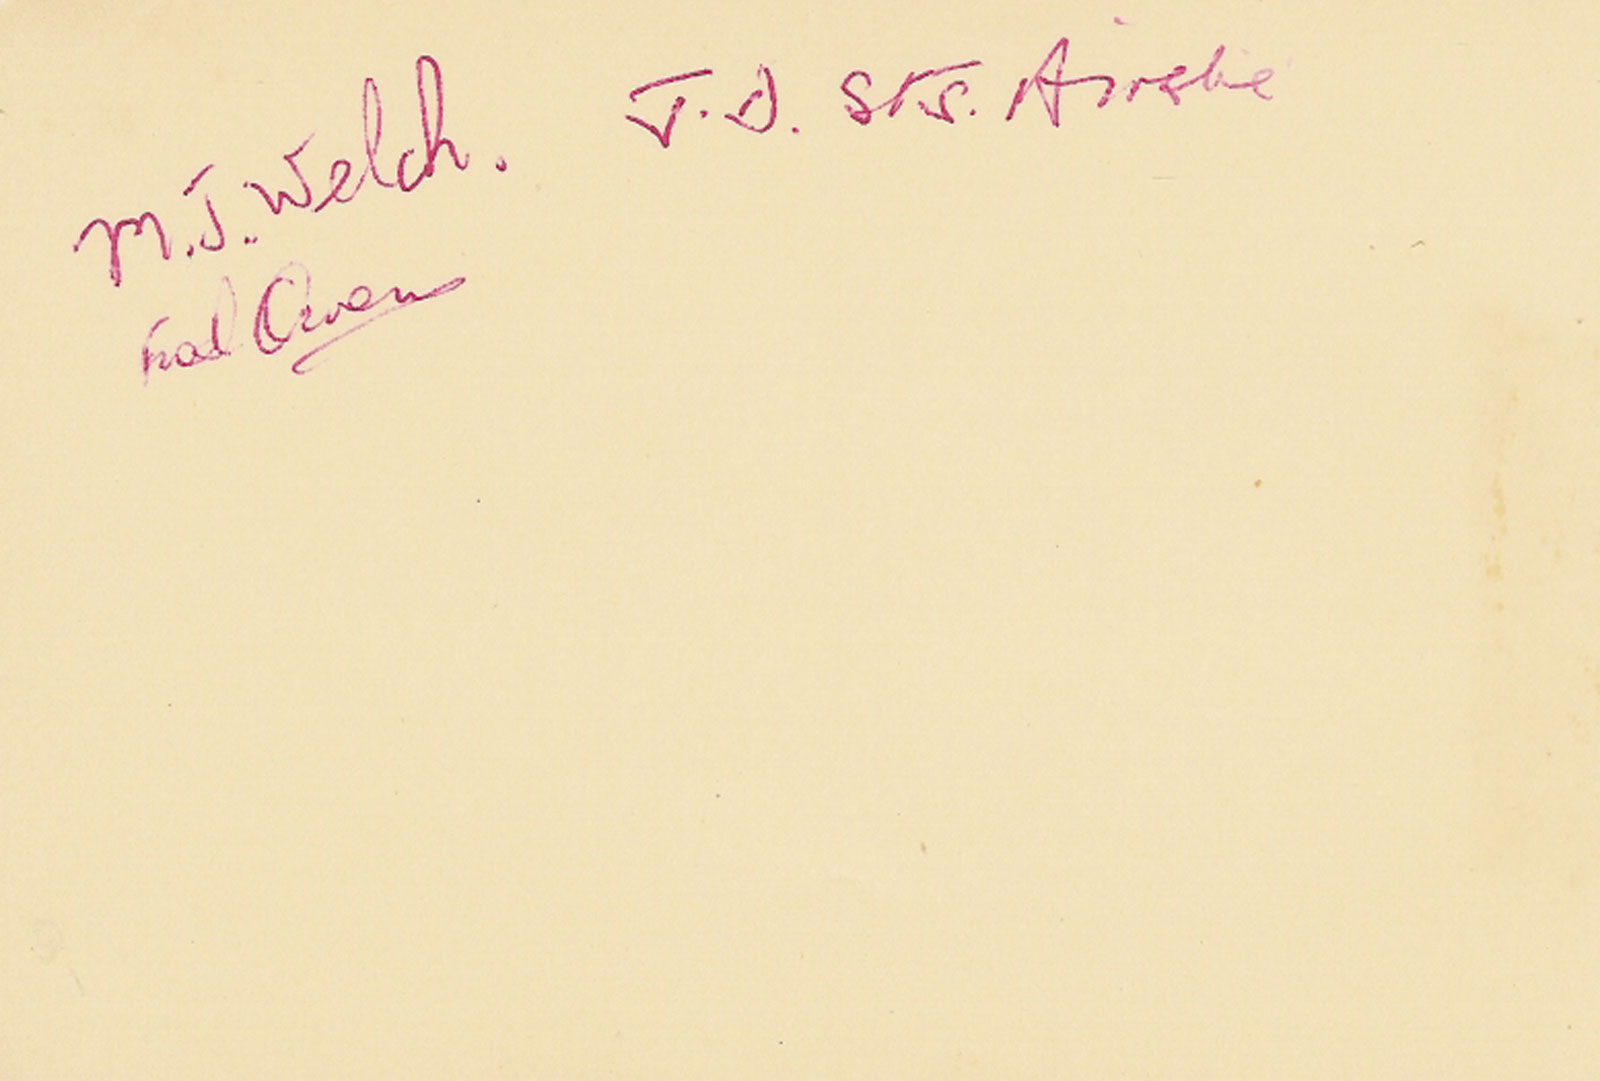 M.J. Welch.
J.D. St.J. Ainslie
Fred Owen